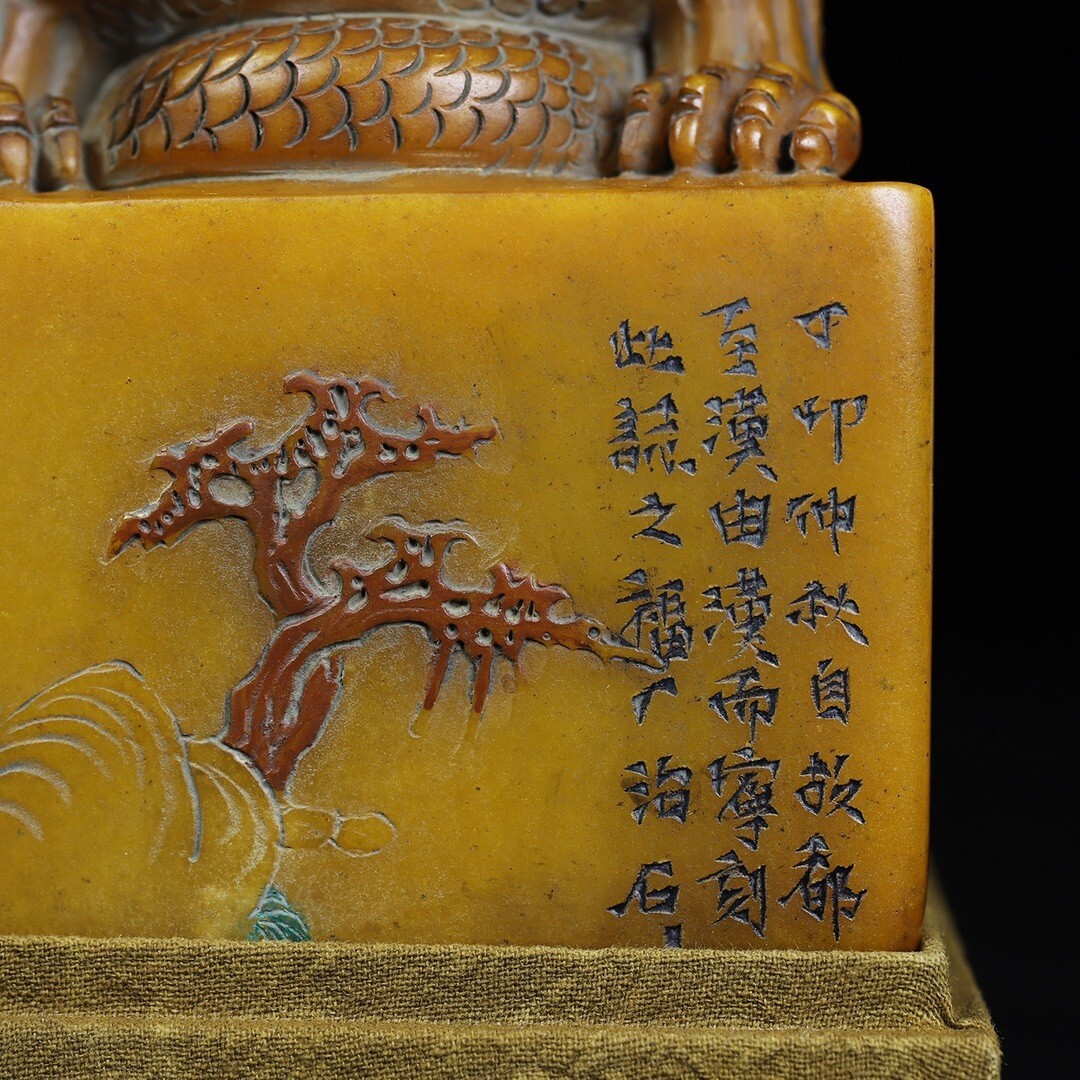 丁卯仲秋自故都
至漢由漢而寧刻
此誌之福厂治石